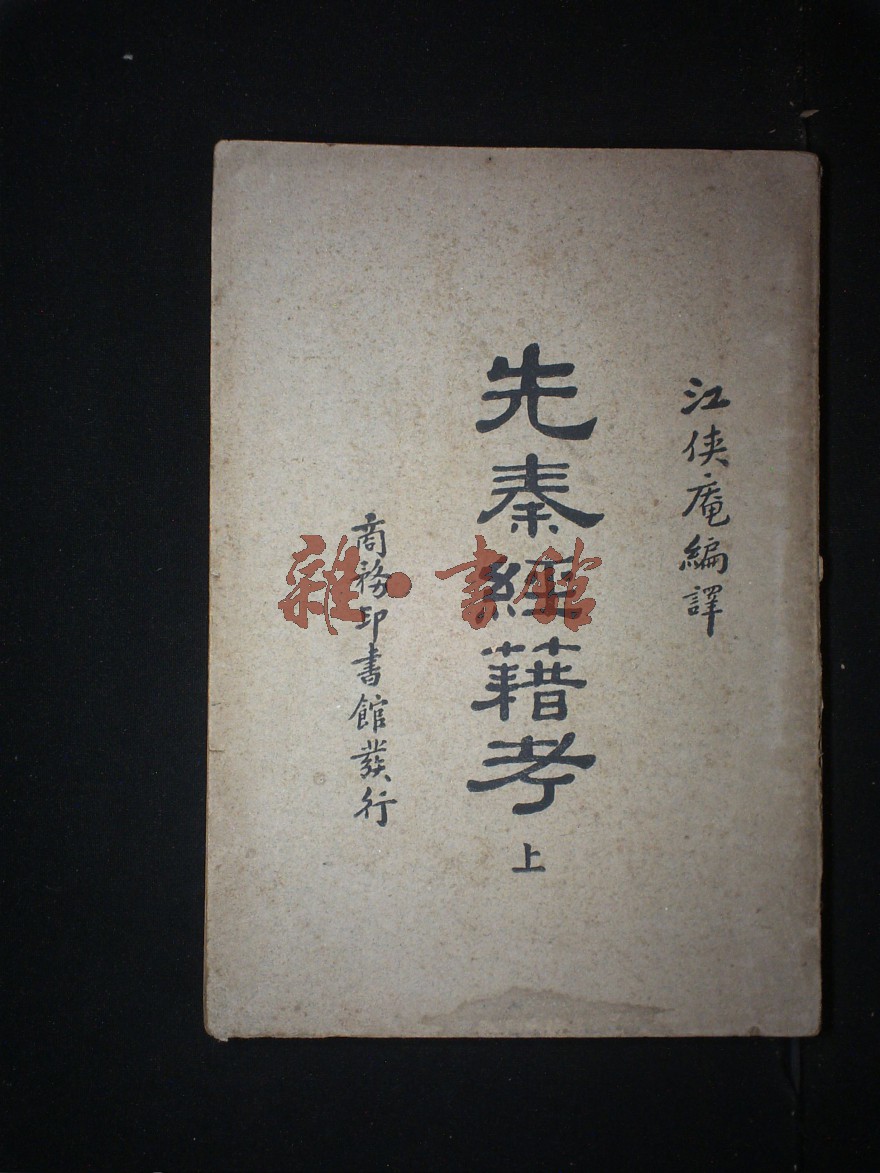 江俠庵編譯
先秦經籍考
上
商務印書館發行
雜·書館